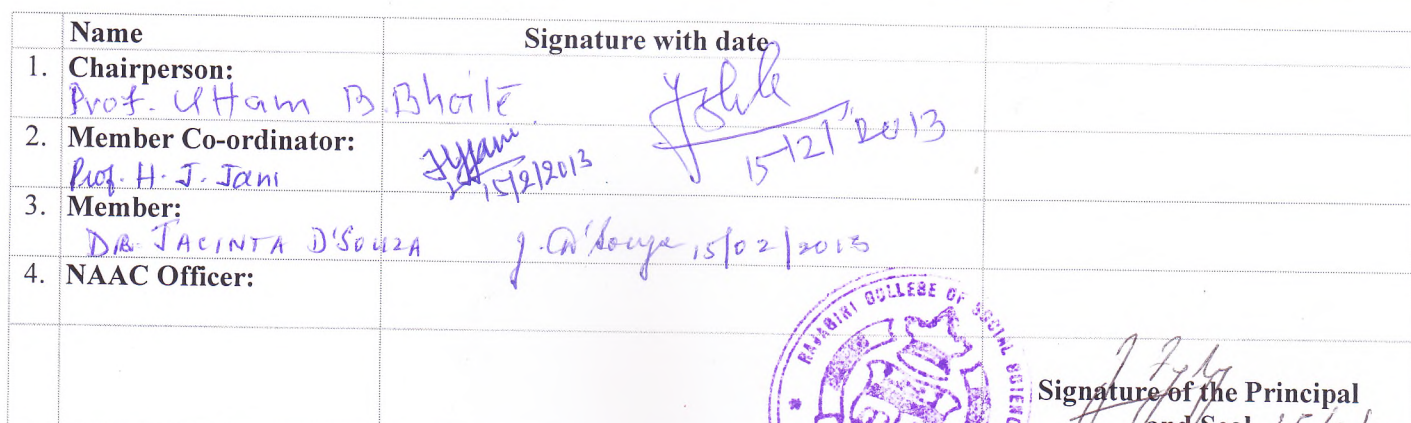 Name Signature with date
1. Chairperson:
Prof. Uttam B. Bhoite
15/2/2013
2. Member Co-ordinator:
Prof. H. J. Jani HJJani
15/2/2013
3. Member:
DR. JACINTA D'SOUZA J. D'Souza 15/02/2013
4. NAAC Officer:
RAJAGIRI COLLEGE OF SOCIAL SCIENC
Signature of the Principal
and Seal